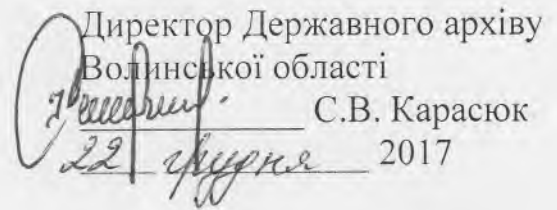 Директор Державного архіву
Волинської області
С.В. Карасюк
22 грудня 2017